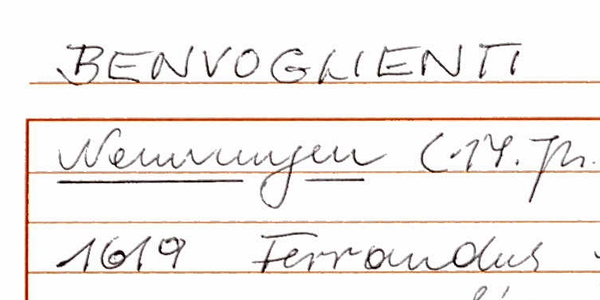 BENVOGLIENTI
Nennungen (17. Jh.
1619 Ferrandus